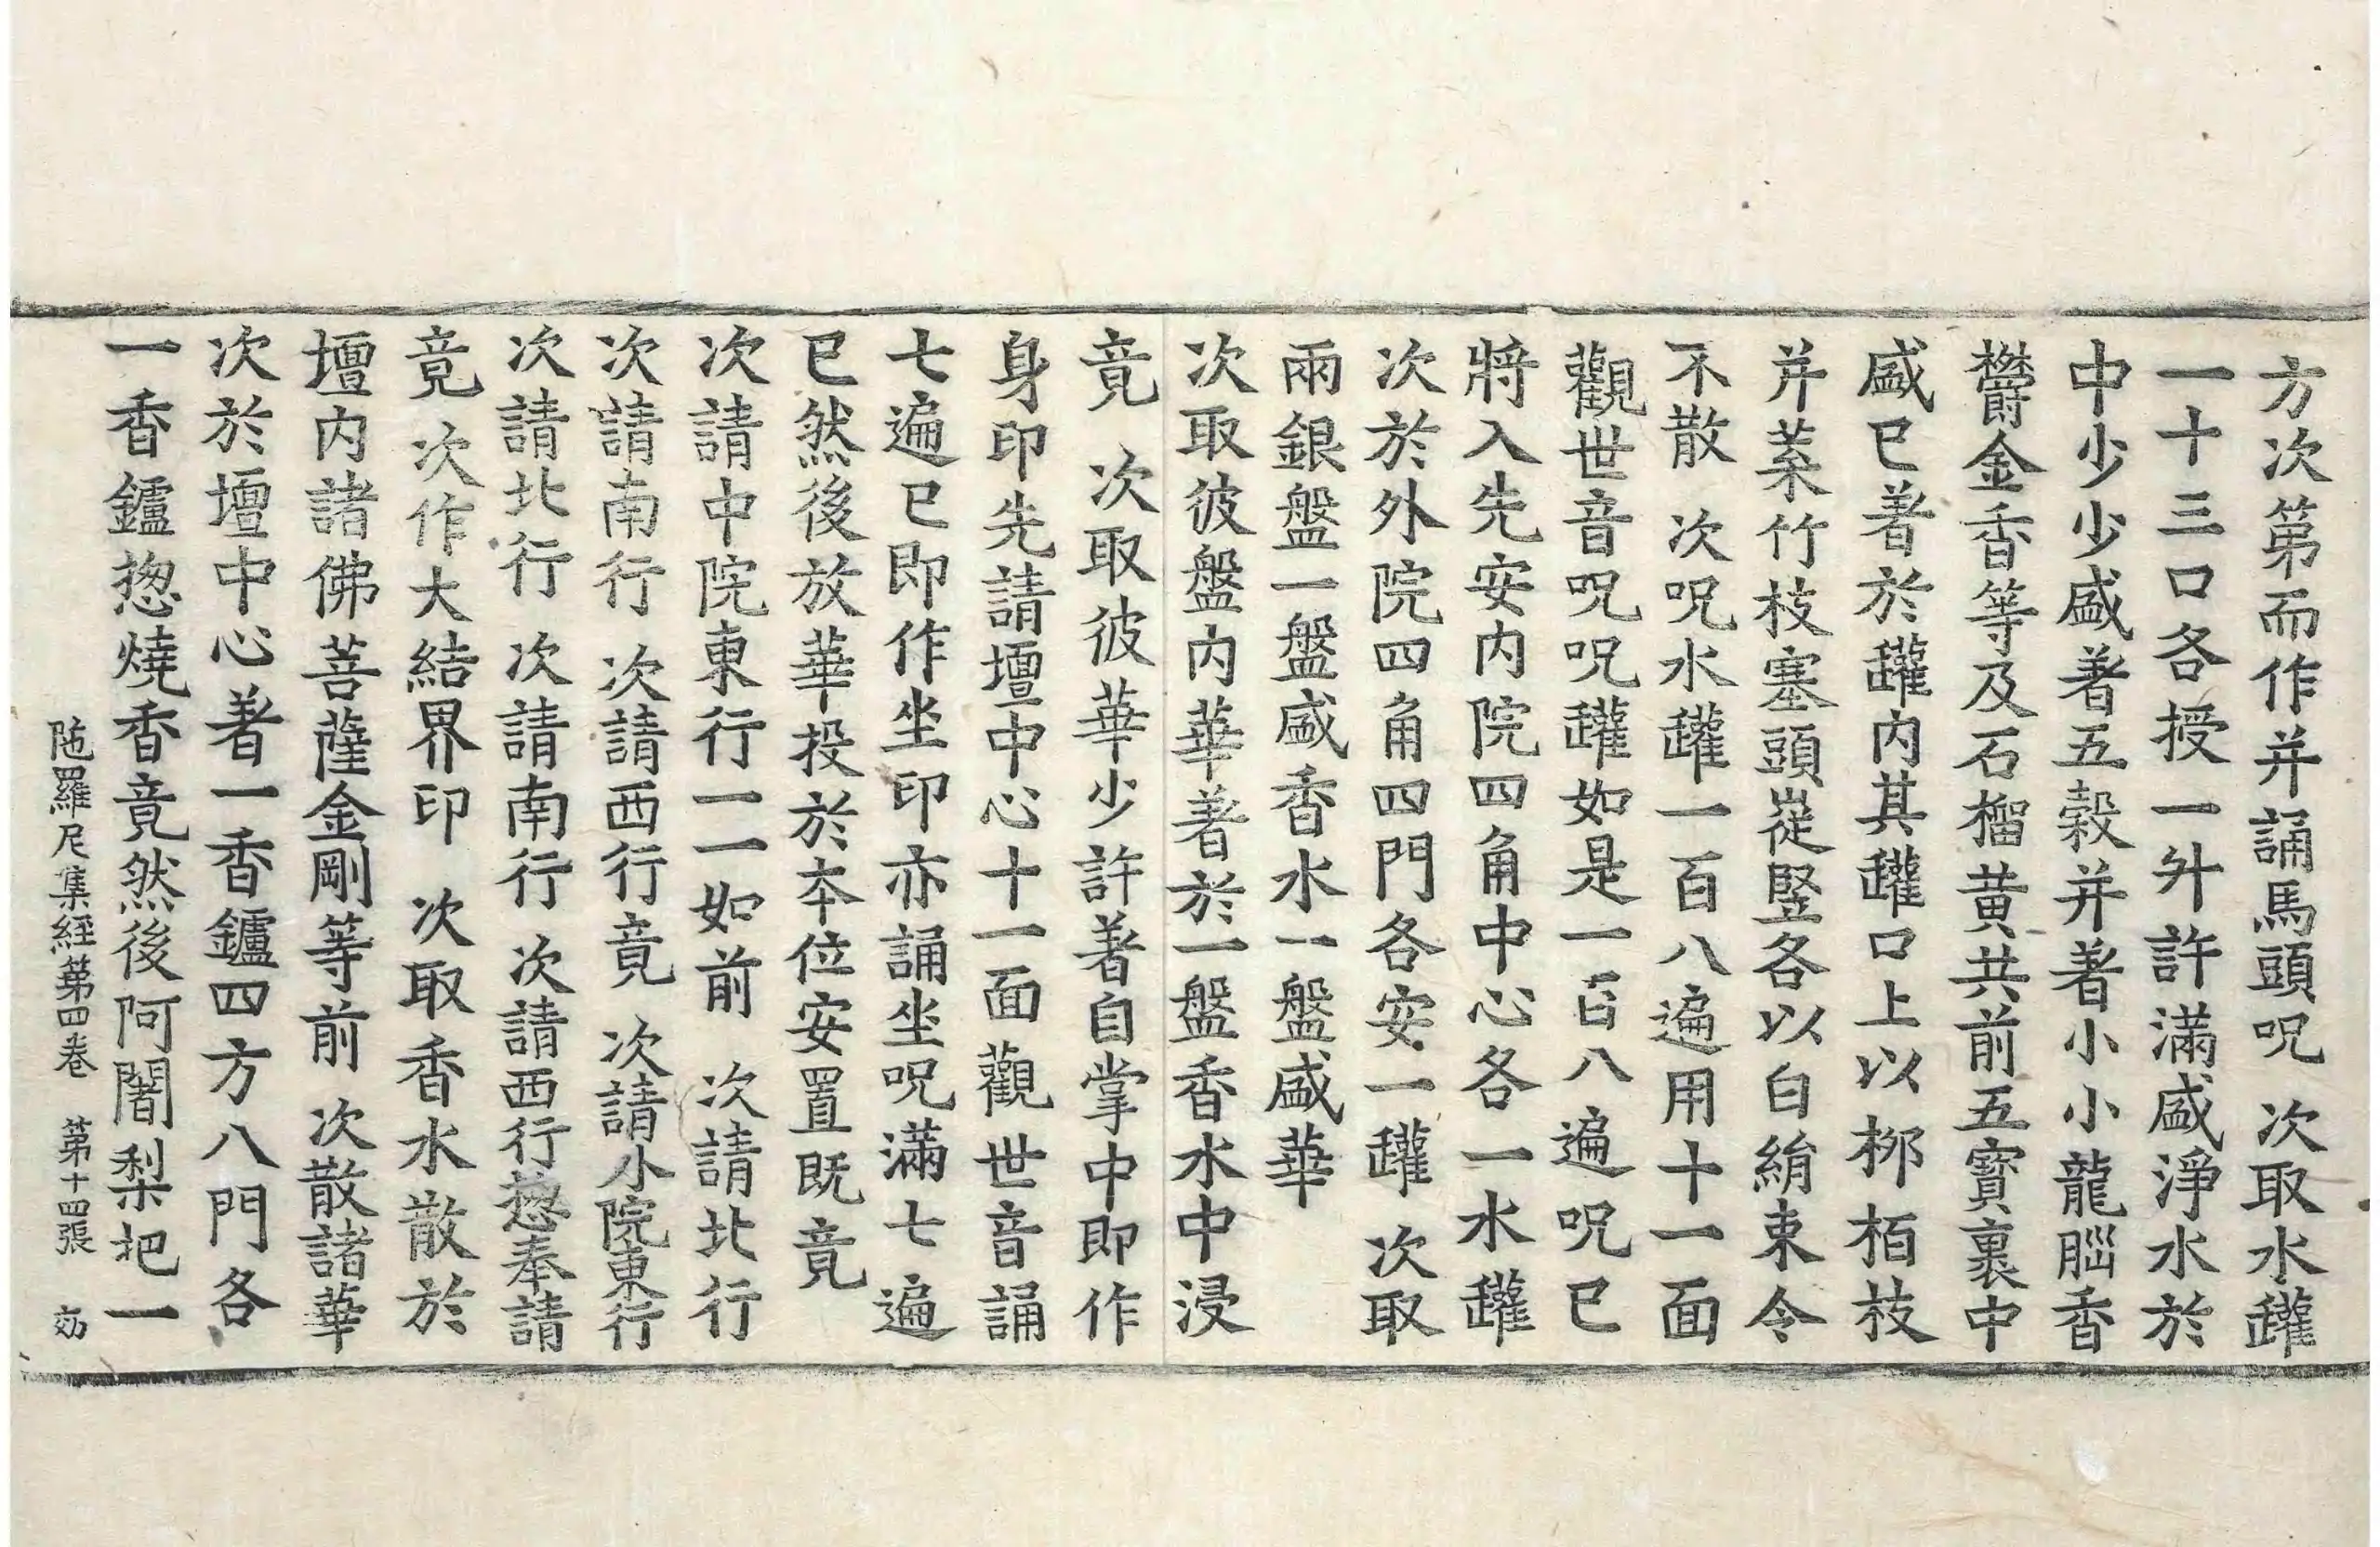 方次第而作并誦馬頭呪 次取水罐
一十三口各授一升許滿盛淨水於
中少少盛著五穀并著小小龍腦香
欝金香等及石榴黃共前五寶裹中
盛已著於罐內其罐口上以柳栢枝
并菜竹枝塞頭㞷竪各以白絹束令
不散 次呪水罐一百八遍用十一面
觀世音呪呪罐如是一百八遍呪已
將入先安內院四角中心各一水罐
次於外院四角四門各安一罐 次取
兩銀盤一盤盛香水一盤盛華
次取彼盤內華著於一盤香水中浸
竟 次取彼華少許著自掌中即作
身印先請壇中心十一面觀世音誦
七遍已即作坐印亦誦坐呪滿七遍
已然後放華投於本位安置既竟
次請中院東行一一如前 次請北行
次請南行 次請西行竟 次請小院東行
次請北行 次請南行 次請西行揔奉請
竟 次作大結界印 次取香水散於
壇內諸佛菩薩金剛等前 次散諸華
次於壇中心著一香鑪四方八門各
一香鑪揔燒香竟然後阿闍梨把一
陁羅尼集經第四卷 第十四張 効